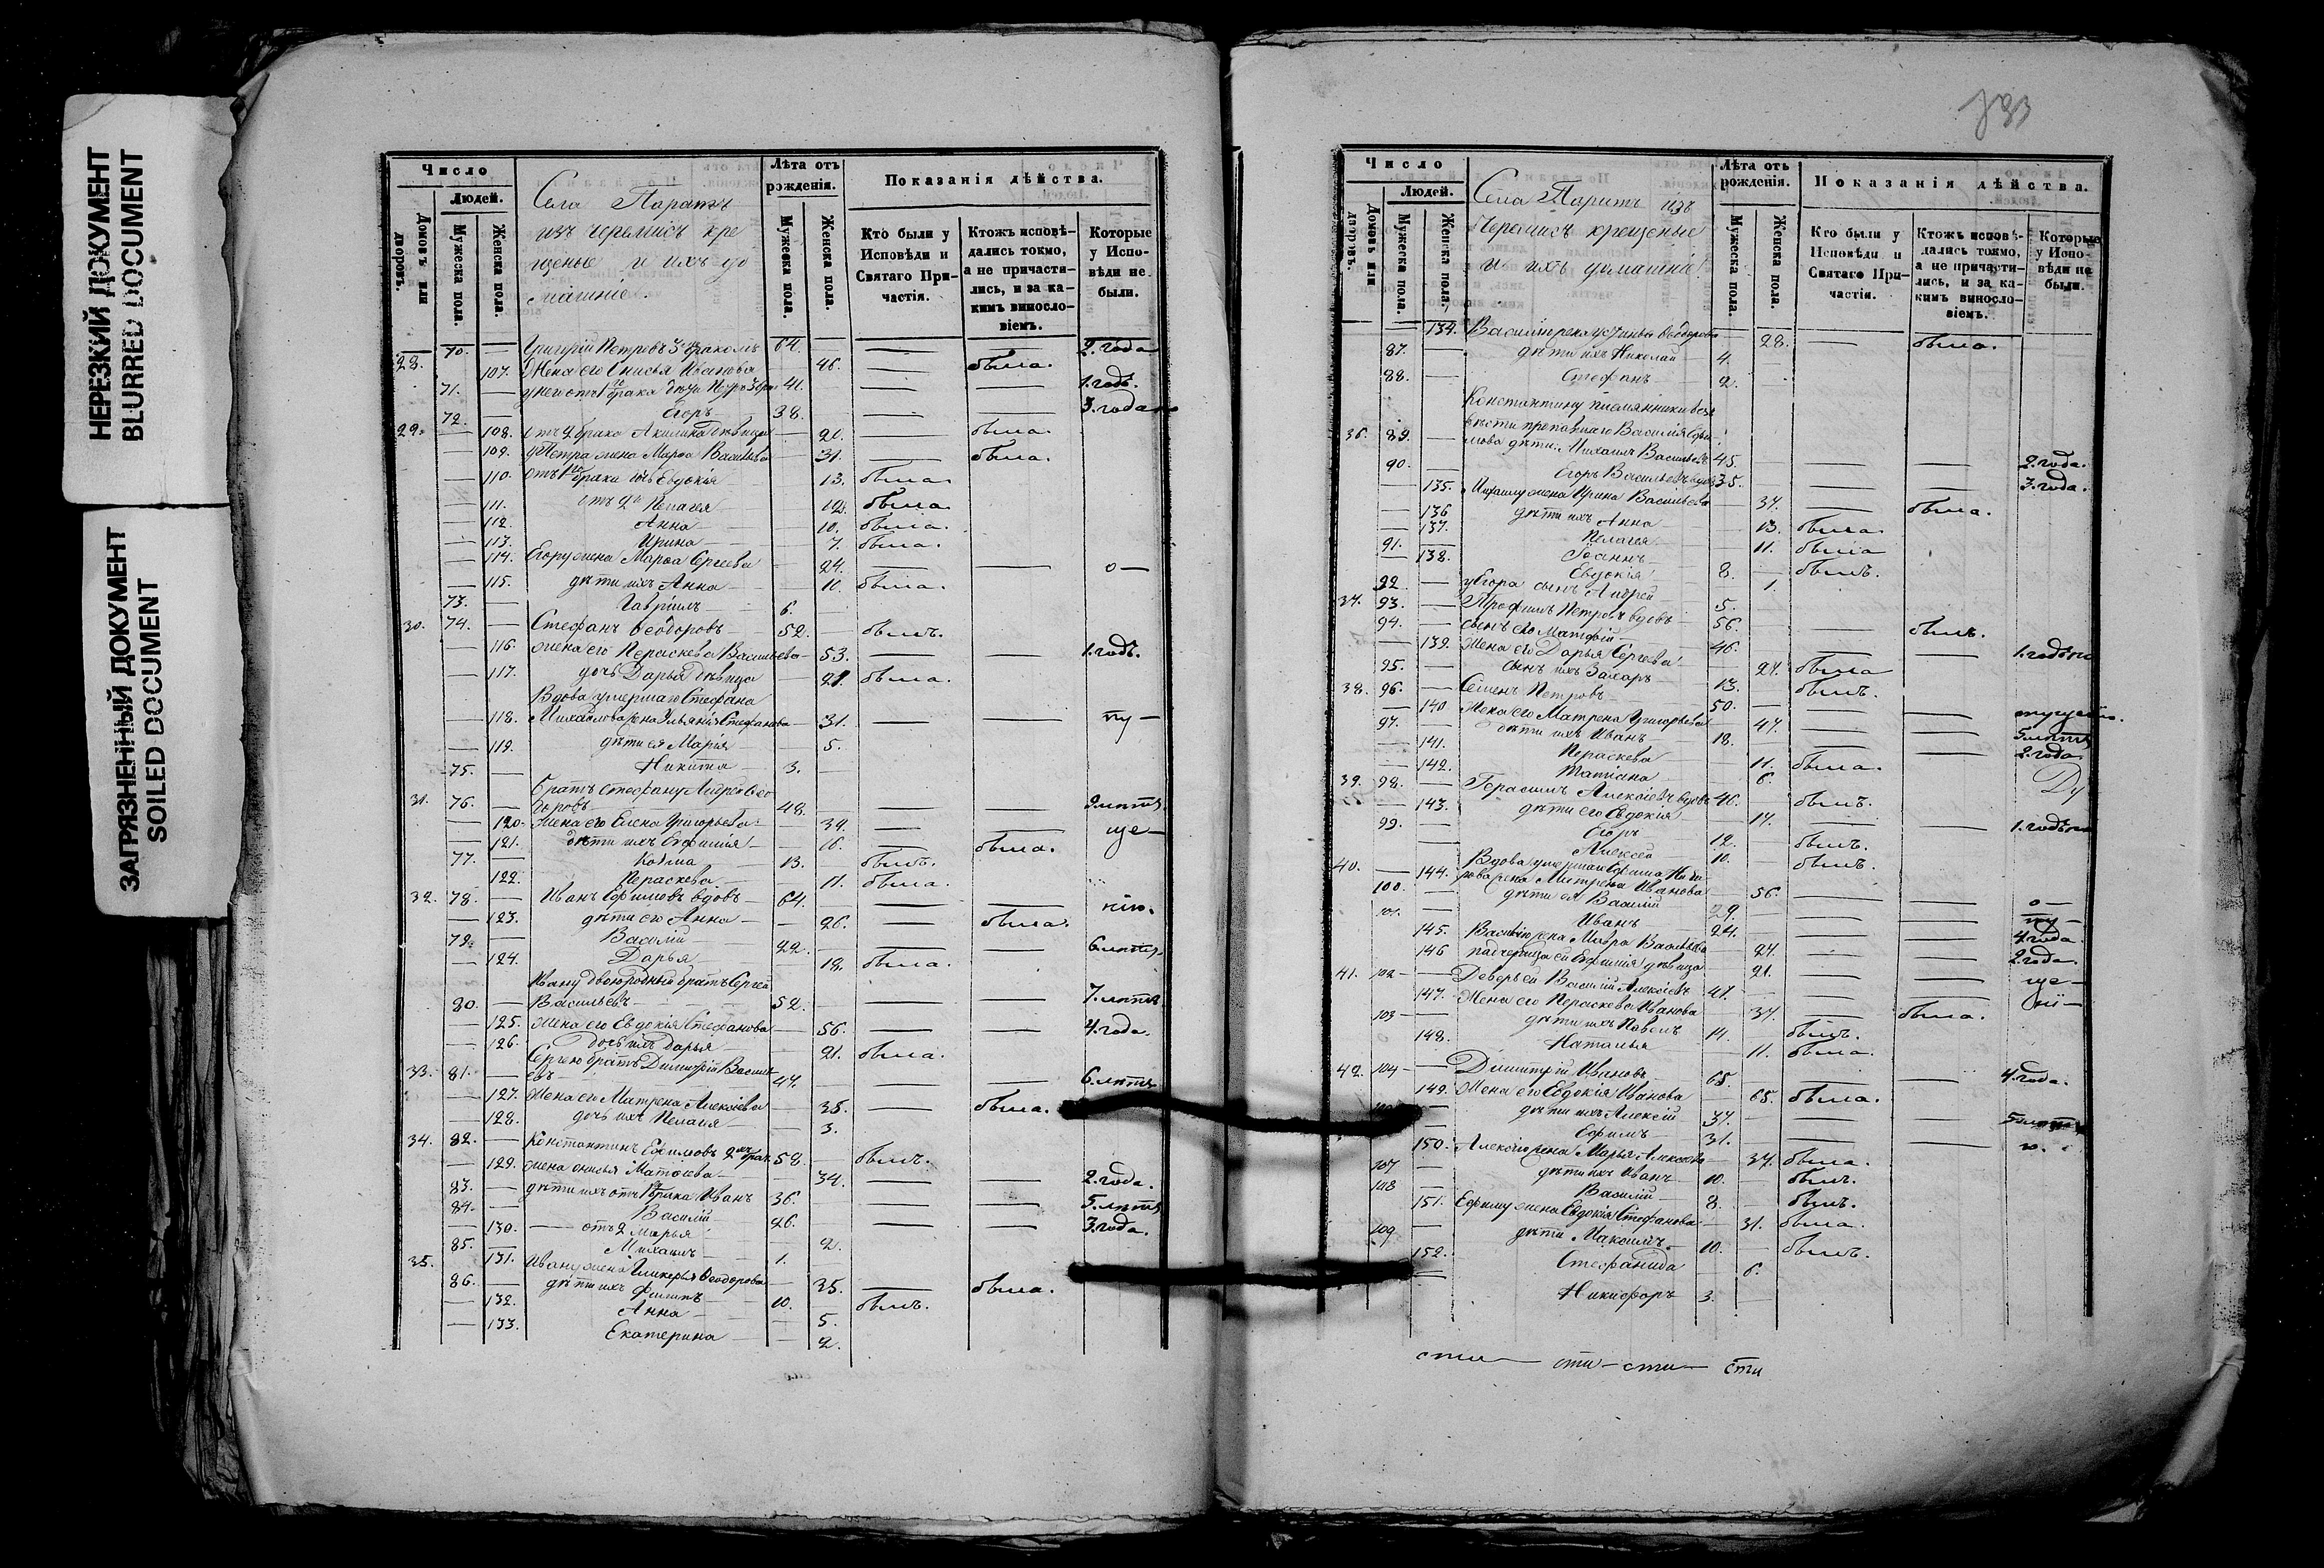 НЕРЕЗКИЙ ДОКУМЕНТ
BLURRED DOCUMENT
ЗАГРЯЗНЕННЫЙ ДОКУМЕНТ
SOILED DOCUMENT
Число
Людей.
Домовъ или дворовъ.
Мужеска пола.
Женска пола.
Села Паратъ
изъ черемисъ кре
щеные и ихъ до
машніе
Лѣта отъ рожденія.
Мужеска пола.
Женска пола.
Показанія дѣйства.
Кто были у Исповѣди и Святаго Причастія.
Ктожъ исповѣдались токмо, а не причастились, и за какимъ винословіемъ.
Которые у Исповѣди не были.
28. 70. — Григорій Петровъ 64. — — 2. года
107. Жена его Анисья Иванова 46. — была.
71. — у него отъ 1 брака дѣти Петръ 41. — — 1. годъ.
72. — Егоръ 38. — — 3. года
29. — 108. отъ 2 брака Акилина дѣвица — 20. — была.
— 109. у Петра жена Марѳа Васильева — 31. — была.
— 110. отъ 1 брака дочь Евдокія 13. была
— 111. отъ 2 Пелагея 12. была.
— 112. Анна 10. была.
— 113. Ирина 7. была.
— 114. Егору жена Марѳа Сергеева 24. — — о —
— 115. дѣти ихъ Анна 10. была.
73. — Гавріилъ 6.
30. 74. — Стефанъ Ѳеодоровъ 52. — былъ.
— 116. жена его Параскева Васильева — 53. — — 1. годъ.
— 117. дочь Дарья дѣвица — 21. была.
Вдова умершаго Стефана
— 118. Михайлова жена Ульянія Стефанова — 31. — — ту —
— 119. дѣти ея Марія — 5.
75. — Никита 3.
31. 76. — Братъ Стефану Андрей Ѳеодоровъ 48. — — 9. лѣтъ
— 120. жена его Елена Григорьева 39. — — ще —
— 121. дѣти ихъ Евфимія — 16. — была.
77. — Козма 13. былъ.
122. Параскева — 11. была.
32. 78. — Иванъ Ефимовъ вдовъ — 64. — —
— 123. дѣти его Анна — 26. — была.
79. — Василій 22. — — 6. лѣтъ
— 124. Дарья 18. была.
Ивану двоюродный братъ Сергей
80. — Васильевъ 52. — — 7. лѣтъ
— 125. жена его Евдокія Стефанова — 56. — — 4. года.
— 126. дочь ихъ Дарья 21. была.
Сергею братъ Димитрій Василь
33. 81. — евъ 47. — — 6. лѣтъ
— 127. Жена его Матрена Алексіева 35. — была.
— 128. дочь ихъ Пелагія — 3.
34. 82. — Константинъ Ефимовъ 58. — былъ.
— 129. жена Анисья Матѳіева 34. — — 2. года.
83. — дѣти ихъ отъ 1 брака Иванъ 36. — — 5. лѣтъ
84. — Василій 26. — — 3. года.
— 130. — отъ 2 Марья 2.
85. — Михаилъ 1.
35. 131. Ивану жена Гликерья Ѳеодорова — 35. — была.
86. — дѣти ихъ Филипъ 10. былъ.
— 132. Анна — 5.
— 133. Екатерина — 2.
Число
Людей.
Домовъ или дворовъ.
Мужеска пола.
Женска пола.
Села Паратъ изъ
Черемисъ крещеные
и ихъ домашніе
Лѣта отъ рожденія.
Мужеска пола.
Женска пола.
Показанія дѣйства.
Кто были у Исповѣди и Святаго Причастія.
Ктожъ исповѣдались токмо, а не причастились, и за какимъ винословіемъ.
Которые у Исповѣди не были.
— 134. Ѳеодорова 28. — была.
87. — дѣти ихъ Николай 4.
88. — Стефанъ 2.
Константину племянники безъ
вѣсти пропавшаго Василія Ефи
36. 89. — мова дѣти: Михаилъ Васильевъ 45. — — 2. года.
90. — Егоръ Васильевъ вдовъ 35. — — 3. года.
— 135. Михаилу жена Ирина Васильева — 37. — была.
— 136 дѣти ихъ Анна 13. была.
— 137. Пелагея 11. была
91. — Іоаннъ 8. — былъ.
— 138. Евдокія 1.
92 — у Егора сынъ Андрей 5.
37. 93. — Трофимъ Петровъ вдовъ 56. — былъ.
94. — сынъ его Матѳей 46. — — 1. годъ
— 139. Жена его Дарья Сергеева 27. была
95. — сынъ ихъ Захаръ 13. — былъ.
38. 96. — Семенъ Петровъ 50. — —
— 140 Жена его Матрена Григорьева 47. — — 5. лѣтъ
97. — дѣти ихъ Иванъ 18. — — 2. года
— 141. Параскева 11. была.
— 142. Татіана 6.
39. 98. — Герасимъ Алексіевъ вдовъ 46. — былъ.
— 143. дѣти его Евдокія — 17. — — 1. годъ
99. — Егоръ 12. былъ.
Алексей 10. былъ.
40. — 144. Матрена Иванова 56. — —
100. — дѣти ея Василій 29. — —
101. — Иванъ 24. — — 4. года
145. Василію жена Мавра Васильева 24. — — 2. года.
146 падчерица ей Евфимія дѣвица 21. — — ще —
41. 102 — Деверь ей Василій Алексіевъ 47. — —
147. Жена его Параскева Иванова 37. — была.
103 — дѣти ихъ Павелъ 14. былъ.
148. Наталья 11. была.
42. 104 — Димитрій Ивановъ 65. — — 4. года.
149. Жена его Евдокія Иванова 65. была.
— дѣти ихъ Алексій 37. — — 5. лѣтъ
— Ефимъ 31. — —
150. Алексію жена Марья Алексіева 37. была.
107 — дѣти ихъ Иванъ 10. — былъ.
108 — Василій 8. — былъ.
151. Ефиму жена Евдокія Стефанова 31. была.
109 — дѣти Максимъ 10. — былъ.
152. Стефанида 6.
— Никифоръ 3. —